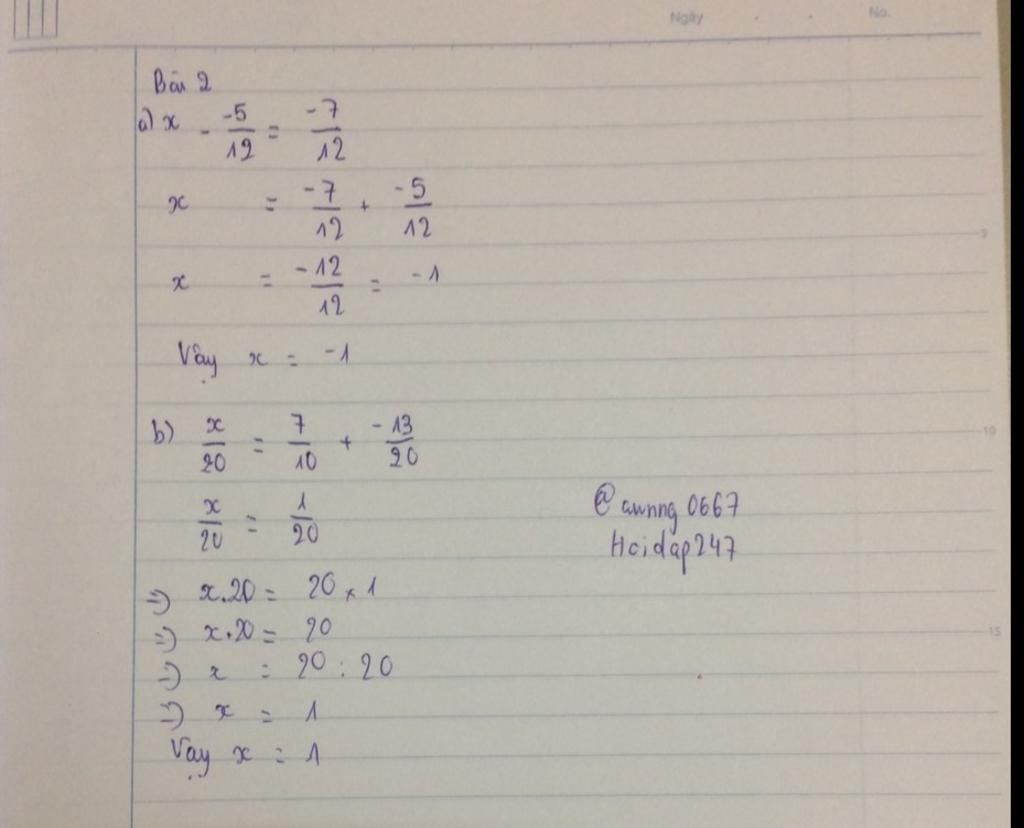 Ngày . . No.
Bài 2
a) x - -5/12 = -7/12
x = -7/12 + -5/12
x = -12/12 = -1
Vậy x = -1
b) x/20 = 7/10 + -13/20
x/20 = 1/20
@awnng0667
Hoidap247
=) x.20 = 20 x 1
=) x.20 = 20
=) x = 20 : 20
=) x = 1
Vậy x = 1
5
10
15